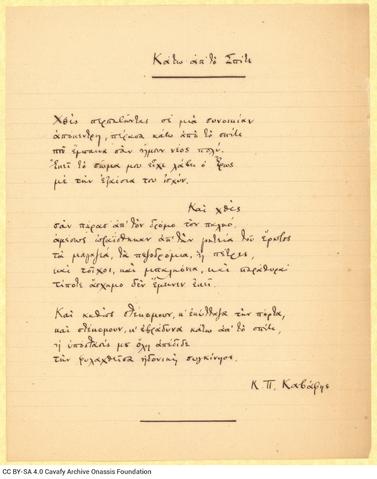 Κάτω ἀπ' τὸ Σπίτι
Χθὲς περπατῶντας σὲ μιὰ συνοικίαν
ἀπόκεντρη, πέρασα κάτω ἀπὸ τὸ σπίτι
ποῦ ἔμπαινα σὰν ἤμουν νέος πολύ.
Ἐκεῖ τὸ σῶμα μου εἶχε λάβει ὁ Ἔρως
μὲ τὴν ἐξαίσια του ἰσχύν.
Καὶ χθὲς
σὰν πέρασ' ἀπ' τὸν δρόμο τὸν παληό,
ἀμέσως ὡραΐσθηκαν ἀπ' τὴν γοητεία τοῦ ἔρωτος
τὰ μαγαζιά, τὰ πεζοδρόμια, ἡ πέτρες,
καὶ τοῖχοι, καὶ μπαλκόνια, καὶ παράθυρα·
τίποτε ἄσχημο δὲν ἔμεινεν ἐκεῖ.
Καὶ καθὼς στέκομουν, κ' ἐκύτταζα τὴν πόρτα,
καὶ στέκομουν, κ' ἐβράδυνα κάτω ἀπ' τὸ σπίτι,
ἡ ὑπόστασίς μου ὅλη ἀπέδιδε
τὴν φυλαχθεῖσα ἡδονικὴ συγκίνησι.
Κ. Π. Καβάφης
CC BY-SA 4.0 Cavafy Archive Onassis Foundation